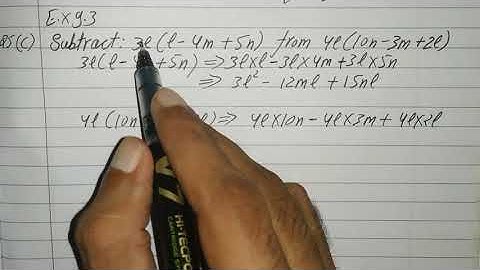 Ex 9.3
Q5(C) Subtract: 3l(l-4m+5n) from 4l(10n-3m+2l)
3l(l- +5n) ⇒ 3l×l-3l×4m+3l×5n
⇒ 3l²-12ml+15nl
4l(10n ) ⇒ 4l×10n-4l×3m+4l×2l
V7
HI-TECPO